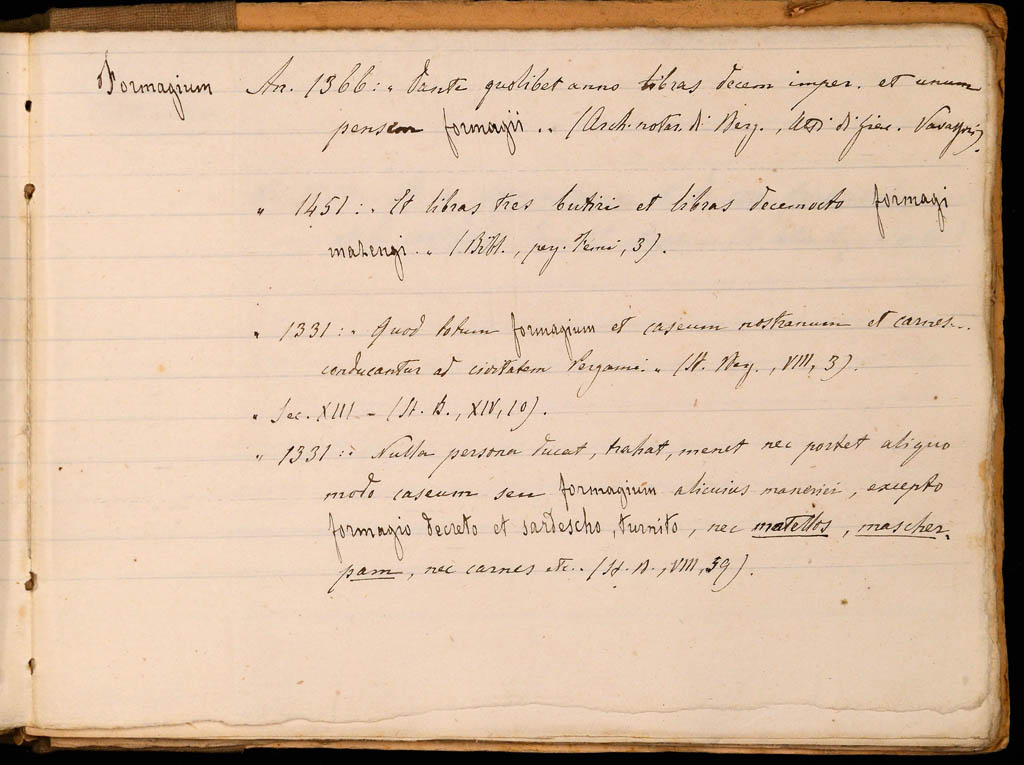 Formagium An. 1366: „ Dante quolibet anno libras decem imper. et unum
pensem formagii „. (Arch. notar. di Berg., Atti di Vavassori)
„ 1451: „ Et libras tres butiri et libras decemocto formagi
mazengi. „ (Bibl., 3).
„ 1331: „ Quod totum formagium et caseum nostranum et carnes...
conducantur ad civitatem Pergami. „ (St. Berg., VIII, 3).
„ Sec. XIII – (St. B., XIV, 10).
„ 1331: „ Nulla persona ducat, trahat, menet nec portet aliquo
modo caseum seu formagium alicuius maneriei, excepto
formagio decreto et sardescho, turnito, nec matellos, mascher-
pam, nec carnes etc. „ (St. B., VIII, 59).